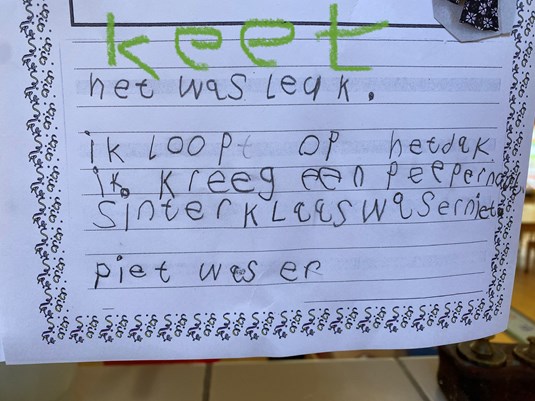 keet
het was leuk.
ik loopt op hetdak
ik kreeg een peepernoot
sinterklaas was erniet.
piet was er